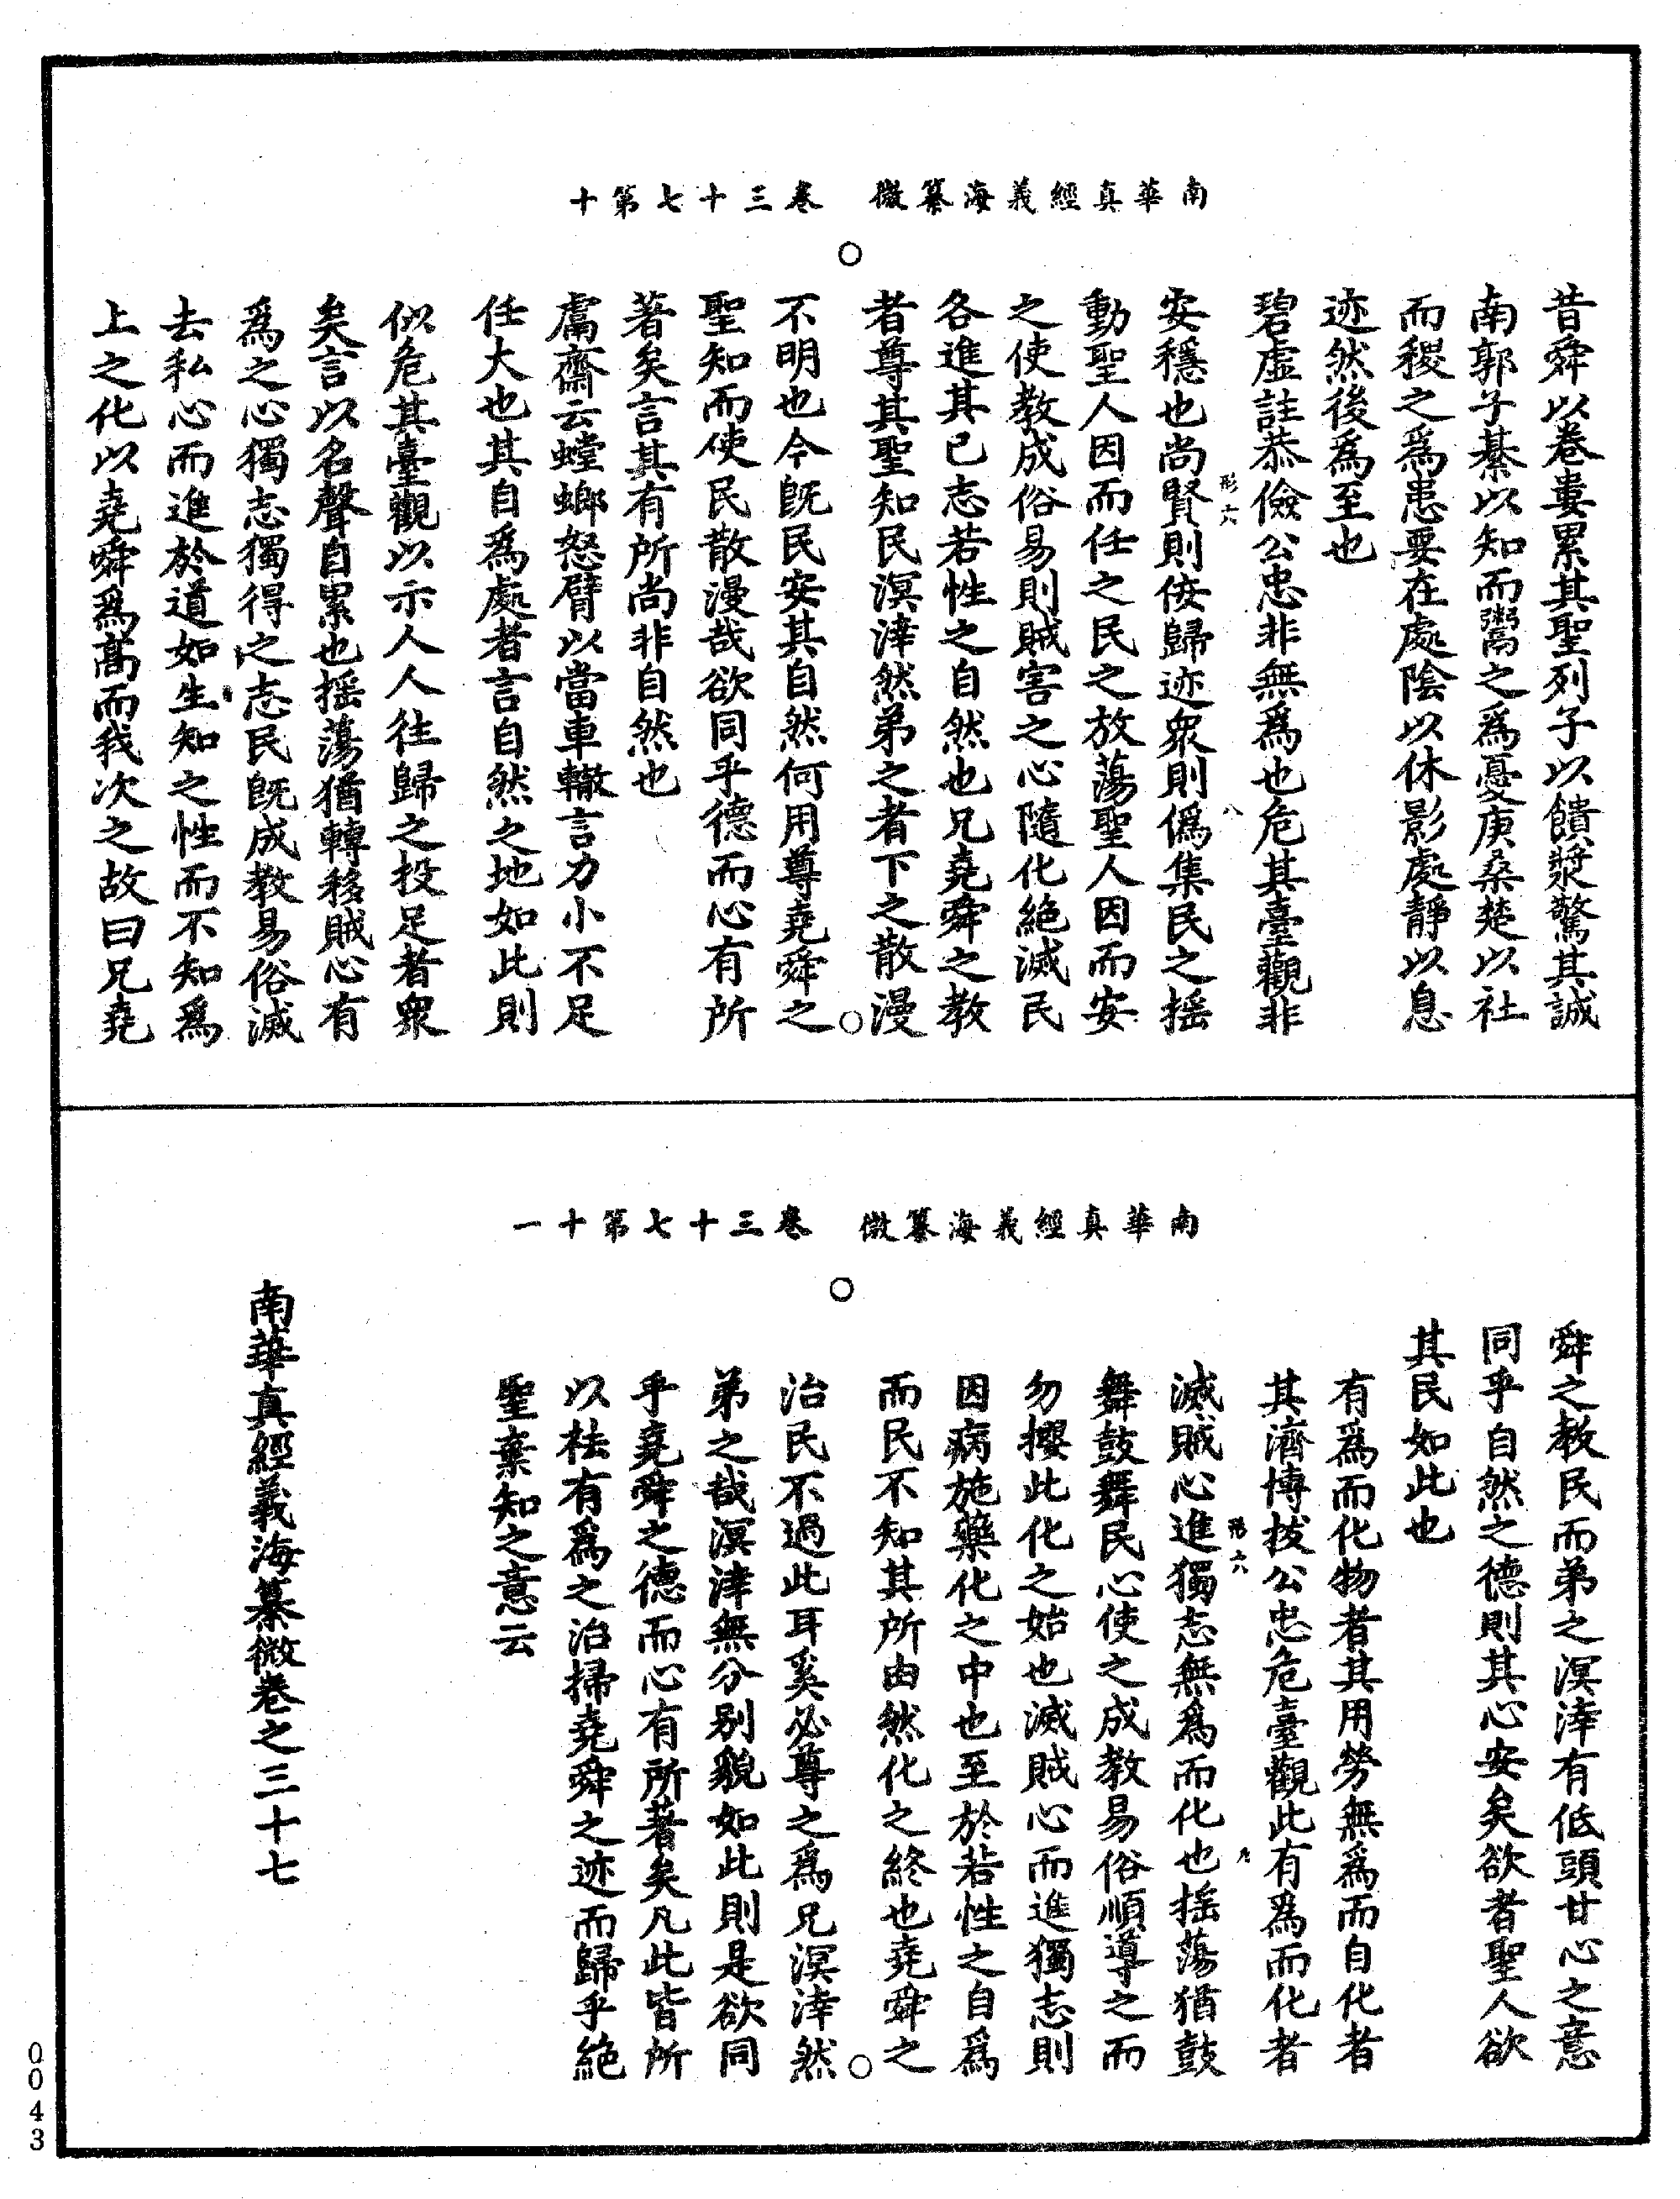 南華真經義海纂微　卷三十七第十
昔舜以卷婁累其聖列子以饋漿驚其誠
南郭子綦以知而鬻之爲憂庚桑楚以社
而稷之爲患要在處陰以休影處靜以息
迹然後爲至也
碧虛註恭儉公忠非無爲也危其臺觀非
形六
八
安穩也尚賢則佞歸迹衆則僞集民之摇
動聖人因而任之民之放蕩聖人因而安
之使教成俗易則賊害之心隨化絶滅民
各進其已志若性之自然也兄堯舜之教
者尊其聖知民溟涬然弟之者下之散漫
不明也今旣民安其自然何用尊堯舜之
聖知而使民散漫哉欲同乎德而心有所
著矣言其有所尚非自然也
鬳齋云螳螂怒臂以當車轍言力小不足
任大也其自爲處者言自然之地如此則
似危其臺觀以示人人往歸之投足者衆
矣言以名聲自累也摇蕩猶轉移賊心有
爲之心獨志獨得之志民旣成教易俗滅
去私心而進於道如生知之性而不知爲
上之化以堯舜爲高而我次之故曰兄堯
南華真經義海纂微　卷三十七第十一
舜之教民而弟之溟涬有低頭甘心之意
同乎自然之德則其心安矣欲者聖人欲
其民如此也
有爲而化物者其用勞無爲而自化者
其濟博拔公忠危臺觀此有爲而化者
形六
九
滅賊心進獨志無爲而化也摇蕩猶鼓
舞鼓舞民心使之成教易俗順導之而
勿攖此化之始也滅賊心而進獨志則
因病施藥化之中也至於若性之自爲
而民不知其所由然化之終也堯舜之
治民不過此耳奚必尊之爲兄溟涬然
弟之哉溟涬無分别貌如此則是欲同
乎堯舜之德而心有所著矣凡此皆所
以袪有爲之治掃堯舜之迹而歸乎絶
聖棄知之意云
南華真經義海纂微卷之三十七
0043